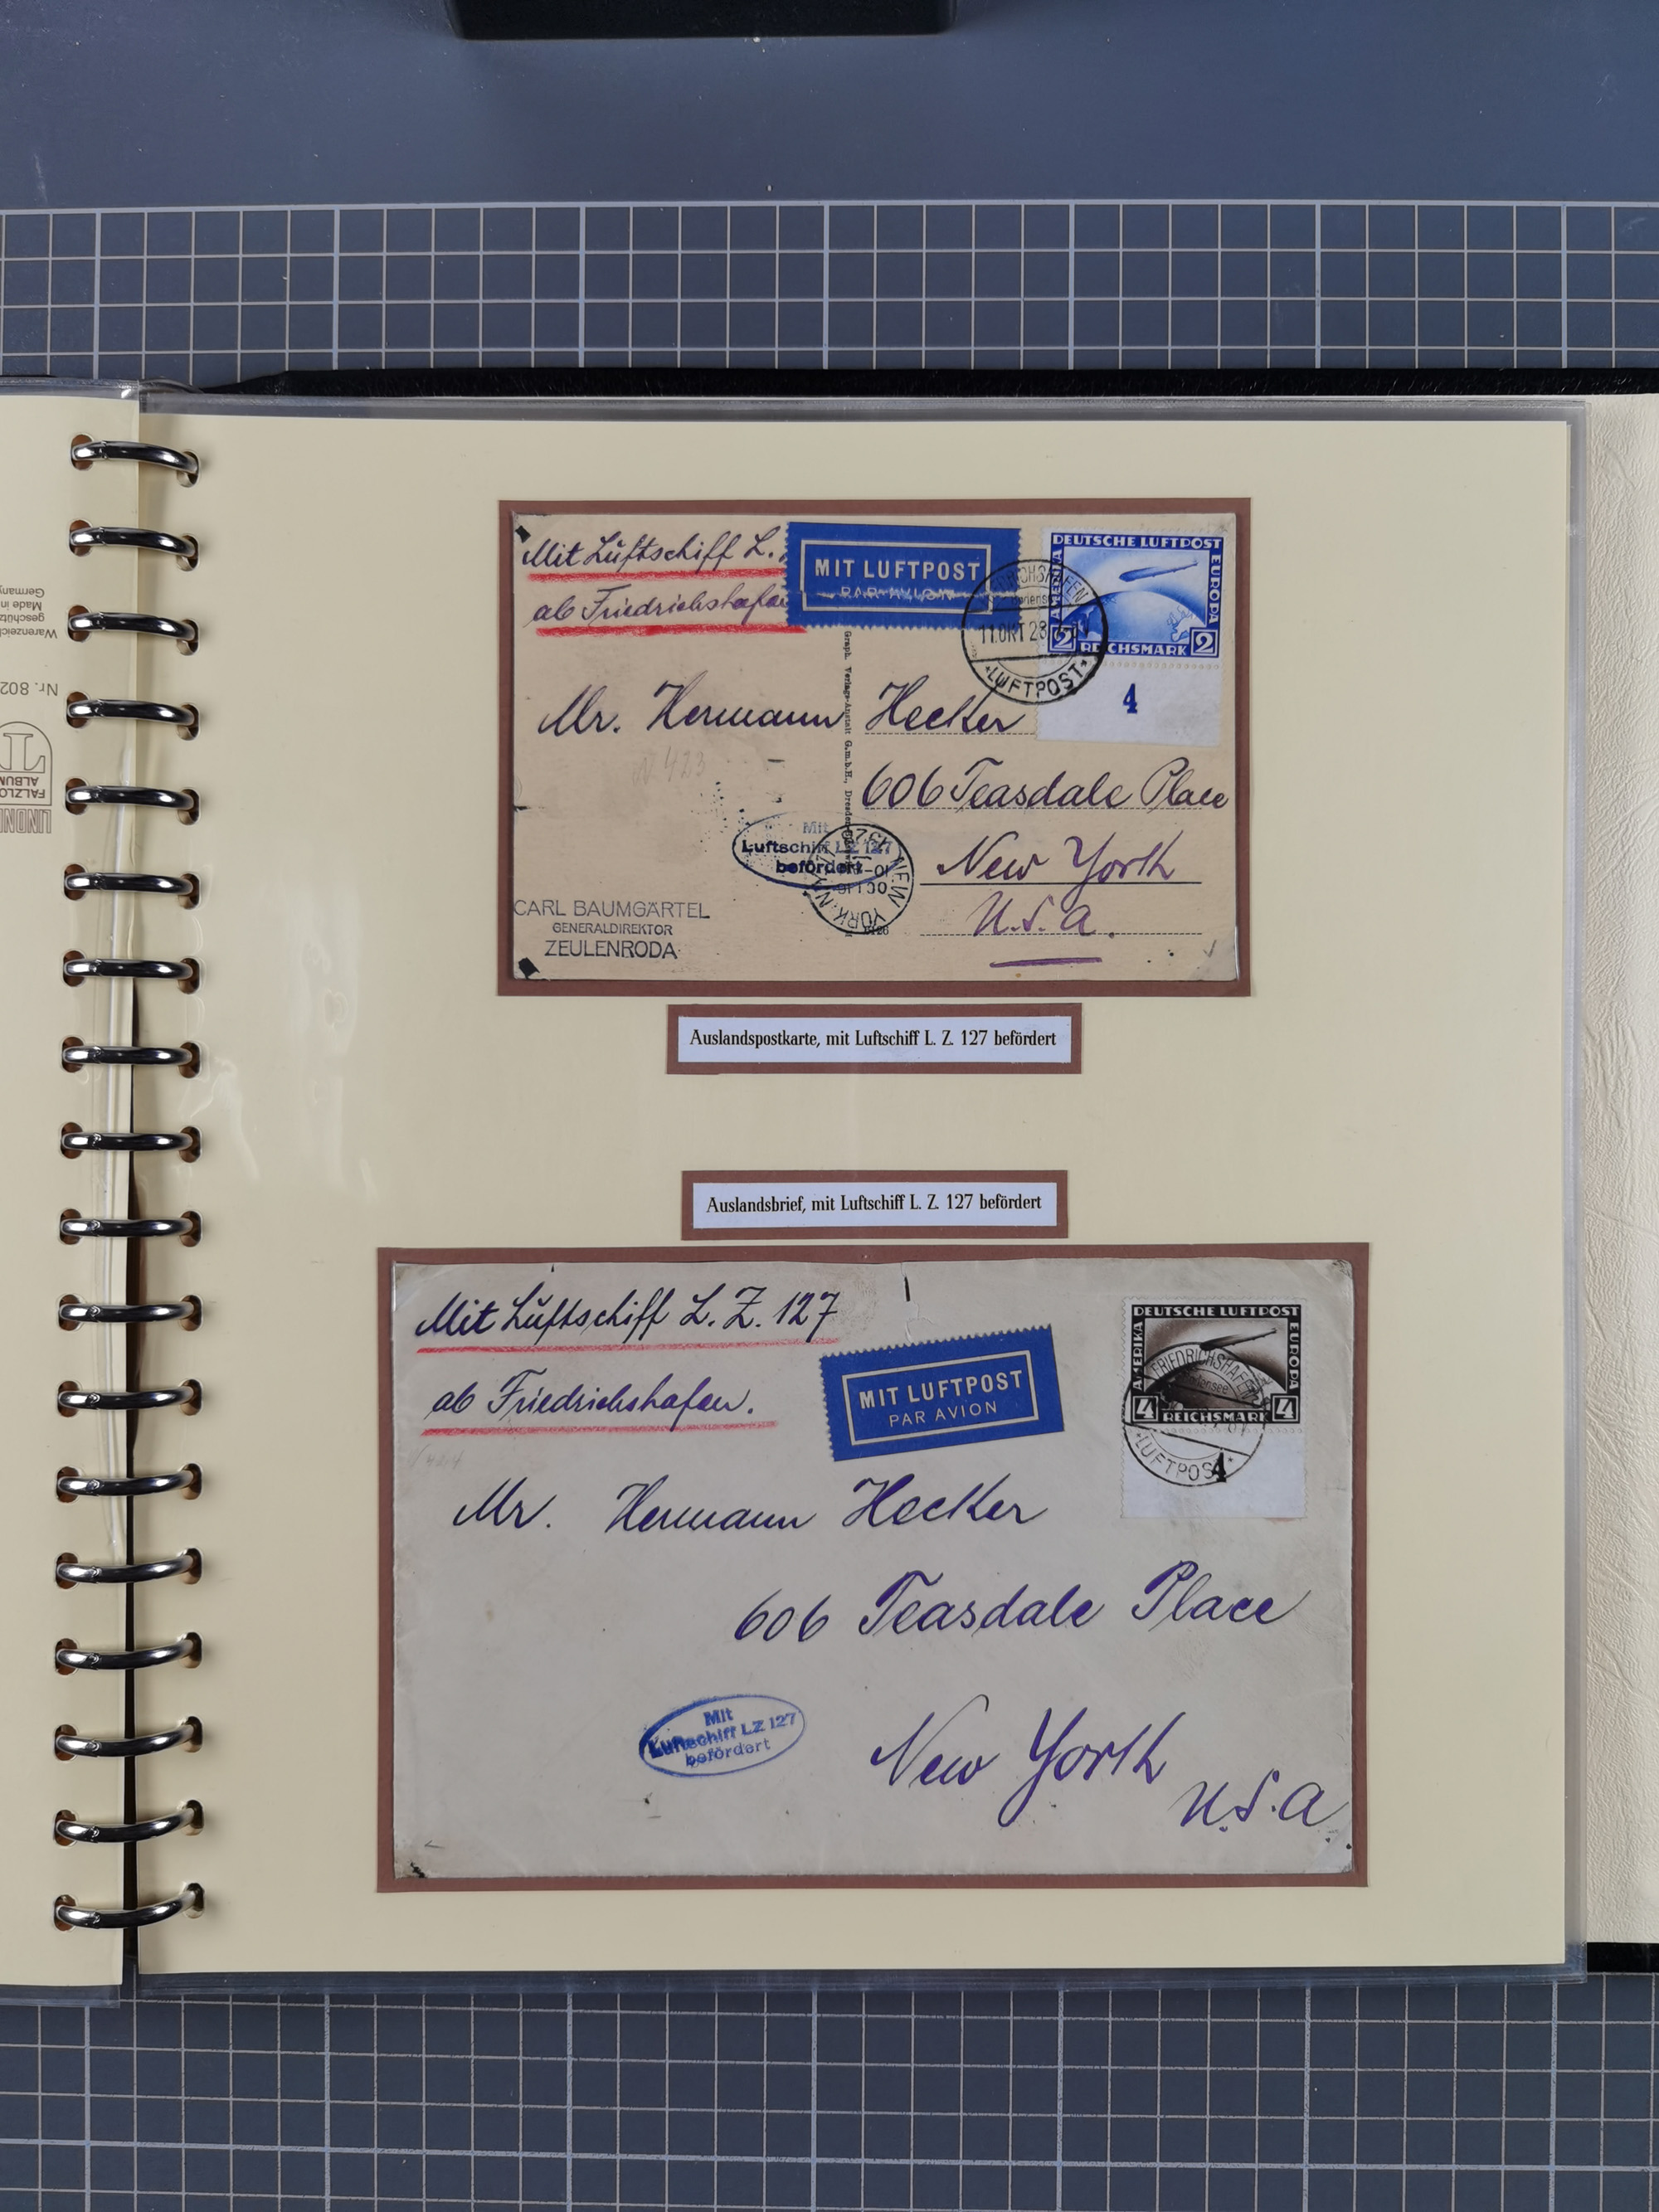 Mit Luftschiff L.
ab Friedrichshafen
MIT LUFTPOST
PAR AVION
DEUTSCHE LUFTPOST
AMERIKA
EUROPA
2 REICHSMARK 2
FRIEDRICHSHAFEN
11.OKT 28
*LUFTPOST*
4
Mr. Hermann Hecker
606 Teasdale Place
New York
U.S.A.
N 423
Graph. Verlags-Anstalt G.m.b.H., Dresden
Mit
Luftschiff LZ 127
befördert
NEW YORK, N.Y.
CARL BAUMGÄRTEL
GENERALDIREKTOR
ZEULENRODA
Auslandspostkarte, mit Luftschiff L. Z. 127 befördert
Auslandsbrief, mit Luftschiff L. Z. 127 befördert
Mit Luftschiff L. Z. 127
ab Friedrichshafen.
MIT LUFTPOST
PAR AVION
DEUTSCHE LUFTPOST
AMERIKA
EUROPA
4 REICHSMARK 4
FRIEDRICHSHAFEN
Bodensee
*LUFTPOST*
4
Mr. Hermann Hecker
606 Teasdale Place
New York
U.S.A.
Mit
Luftschiff LZ 127
befördert
Germany
Made in
geschütz
Warenzeich
Nr. 802
ALBUM
FALZLO
LINDN